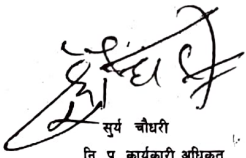 सुर्य चौधरी
नि. प्र. कार्यकारी अधिकृत